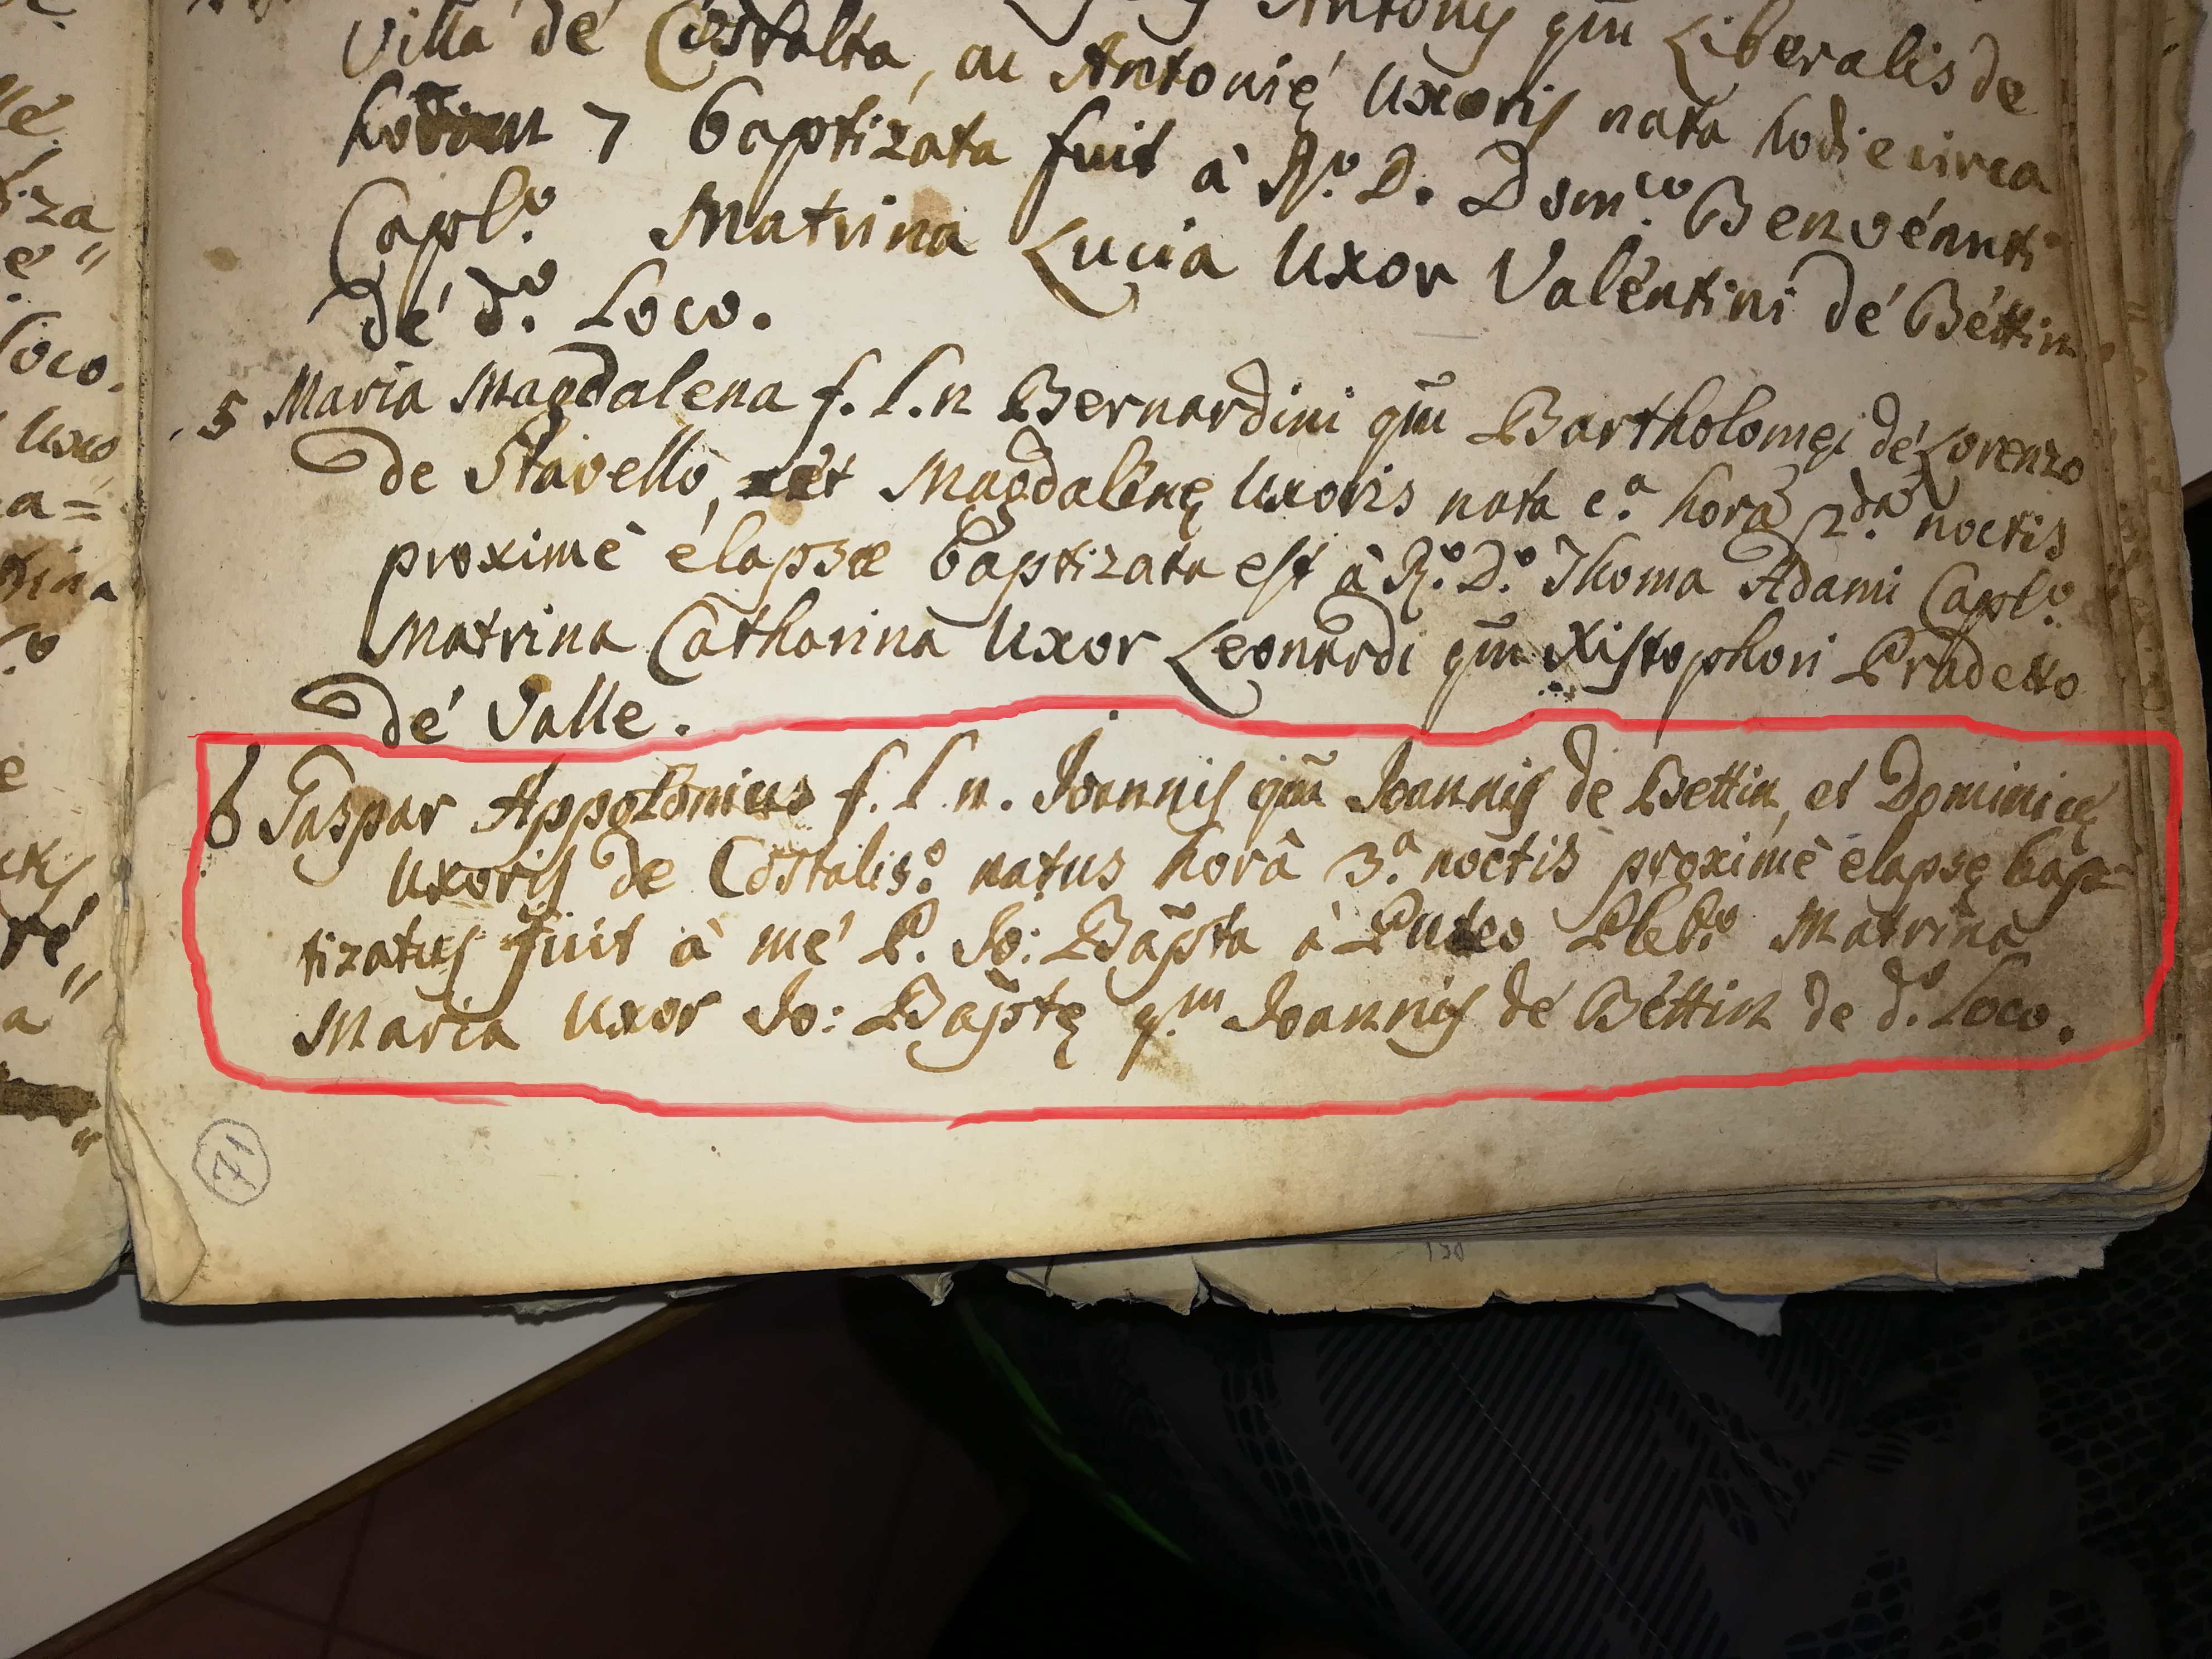 Antonij qm Liberalis de
Villa dé Costalta, ac Antonię Uxoris nata hodie circa
horam 7 baptizata fuit à R.º D. Dom.co Benvénuti
Capl.º Matrina Lucia Uxor Valéntini dé Béttin
dé d.º Loco.
5 Maria Magdalena f. l. n Bernardini qm Bartholomęi dé Lorenzo
de Stavello, et Magdalénę Uxoris nata c.ª horã 2.da noctis
proximè élapsæ baptizata est à R.º D.º Thoma Adami Capl.º
Matrina Catharina Uxor Leonardi qm Xistophori Pradetto
dé Valle.
6 Gaspar Appolonius f. l. n. Joannis qm Joannis de Bettin, et Dominicę
Uxoris de Costaliss.º natus horâ 3.ª noctis proximè élapsę bap=
tizatus fuit à mé P. Jo: Bapta à Puteo Pleb.º Matrina
Maria Uxor Jo: Baptę q.m Joannis dé Béttin de d.º Loco.
71